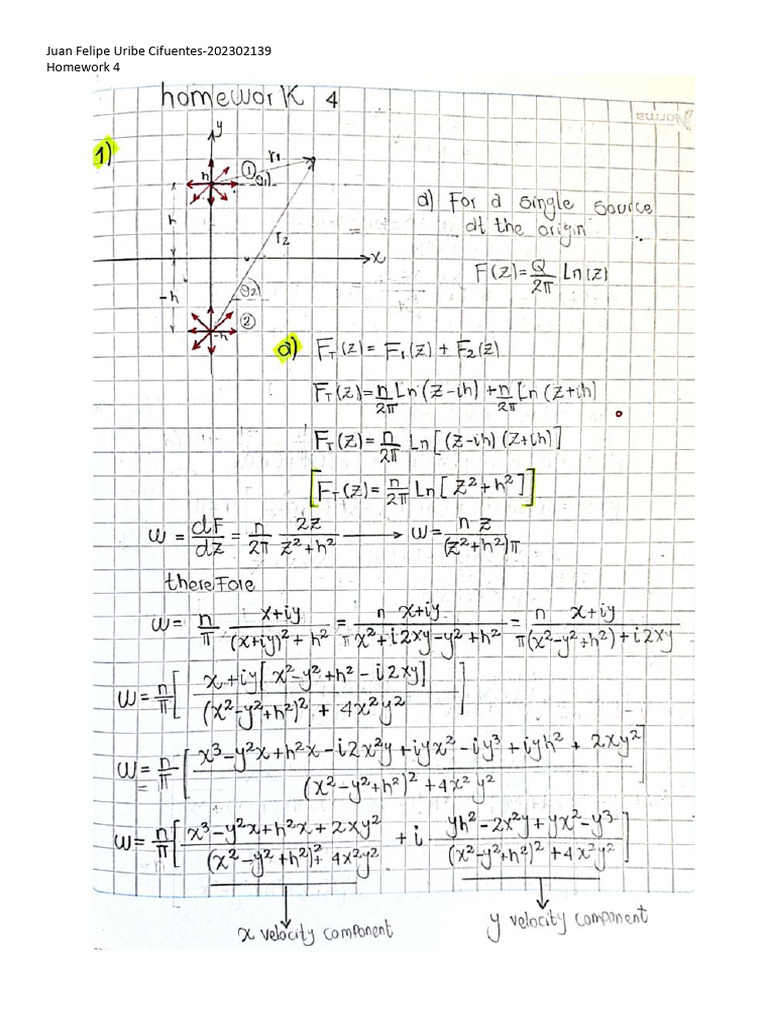 Juan Felipe Uribe Cifuentes-202302139
Homework 4
homework 4
Norma
1)
y
n
1
r1
θ1)
h
r2
x
-h
θ2)
2
-h
a) For a single source
at the origin
F(z)=Q/2π Ln(z)
a) F_T(z) = F₁(z) + F₂(z)
F_T(z)=n/2π Ln(z-ih) + n/2π Ln(z+ih)
F_T(z)=n/2π Ln[(z-ih)(z+ih)]
[F_T(z)=n/2π Ln[z²+h²]]
ω = dF/dz = n/2π 2z/z²+h² → ω= n z/(z²+h²)π
therefore
ω= n/π x+iy/(x+iy)²+h² = n/π x+iy/x²+i2xy-y²+h² = n/π x+iy/(x²-y²+h²)+i2xy
ω=n/π[x+iy[x²-y²+h²-i2xy]/(x²-y²+h²)²+4x²y²]
ω=n/π[x³-y²x+h²x-i2x²y+iyx²-iy³+iyh²+2xy²/(x²-y²+h²)²+4x²y²]
ω=n/π[x³-y²x+h²x+2xy²/(x²-y²+h²)²+4x²y² + i yh²-2x²y+yx²-y³/(x²-y²+h²)²+4x²y²]
x velocity component
y velocity component